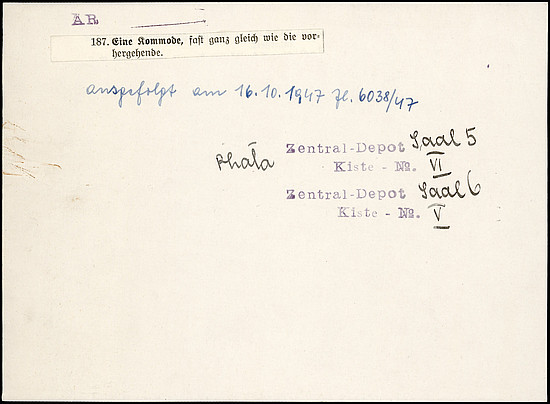 AR
187. Eine Kommode, fast ganz gleich wie die vor-
hergehende.
ausgefolgt am 16.10.1947 Zl. 6038/47
Zentral-Depot Saal 5
Kiste - No. VI
Zentral-Depot Saal 6
Kiste - No. V